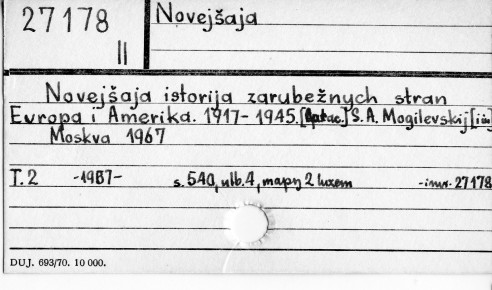 27178 Novejšaja
II
Novejšaja istorija zarubežnych stran
Evropa i Amerika. 1917-1945. S. A. Mogilevskij
Moskva 1967
T. 2 -1967- s. 540, ulb. 4, mapy 2 luzem -inw. 27178
DUJ. 693/70. 10 000.